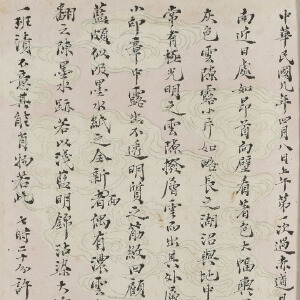 中華民國九年四月八日上午第一次過赤道
南近日處如昂首向壁看著色大幅
灰色雲隙露小片如略長之湖沼與此中
常有極光明之雲隙撥層雲而出其外
小印章中露出不透明質之筋紋回顧
藍頗似吸墨水紙之全新者偶有濃雲
翻之際墨水跡若以淺藍明錦沾染大
一班漬不意其能肖物若此 七時二十分許